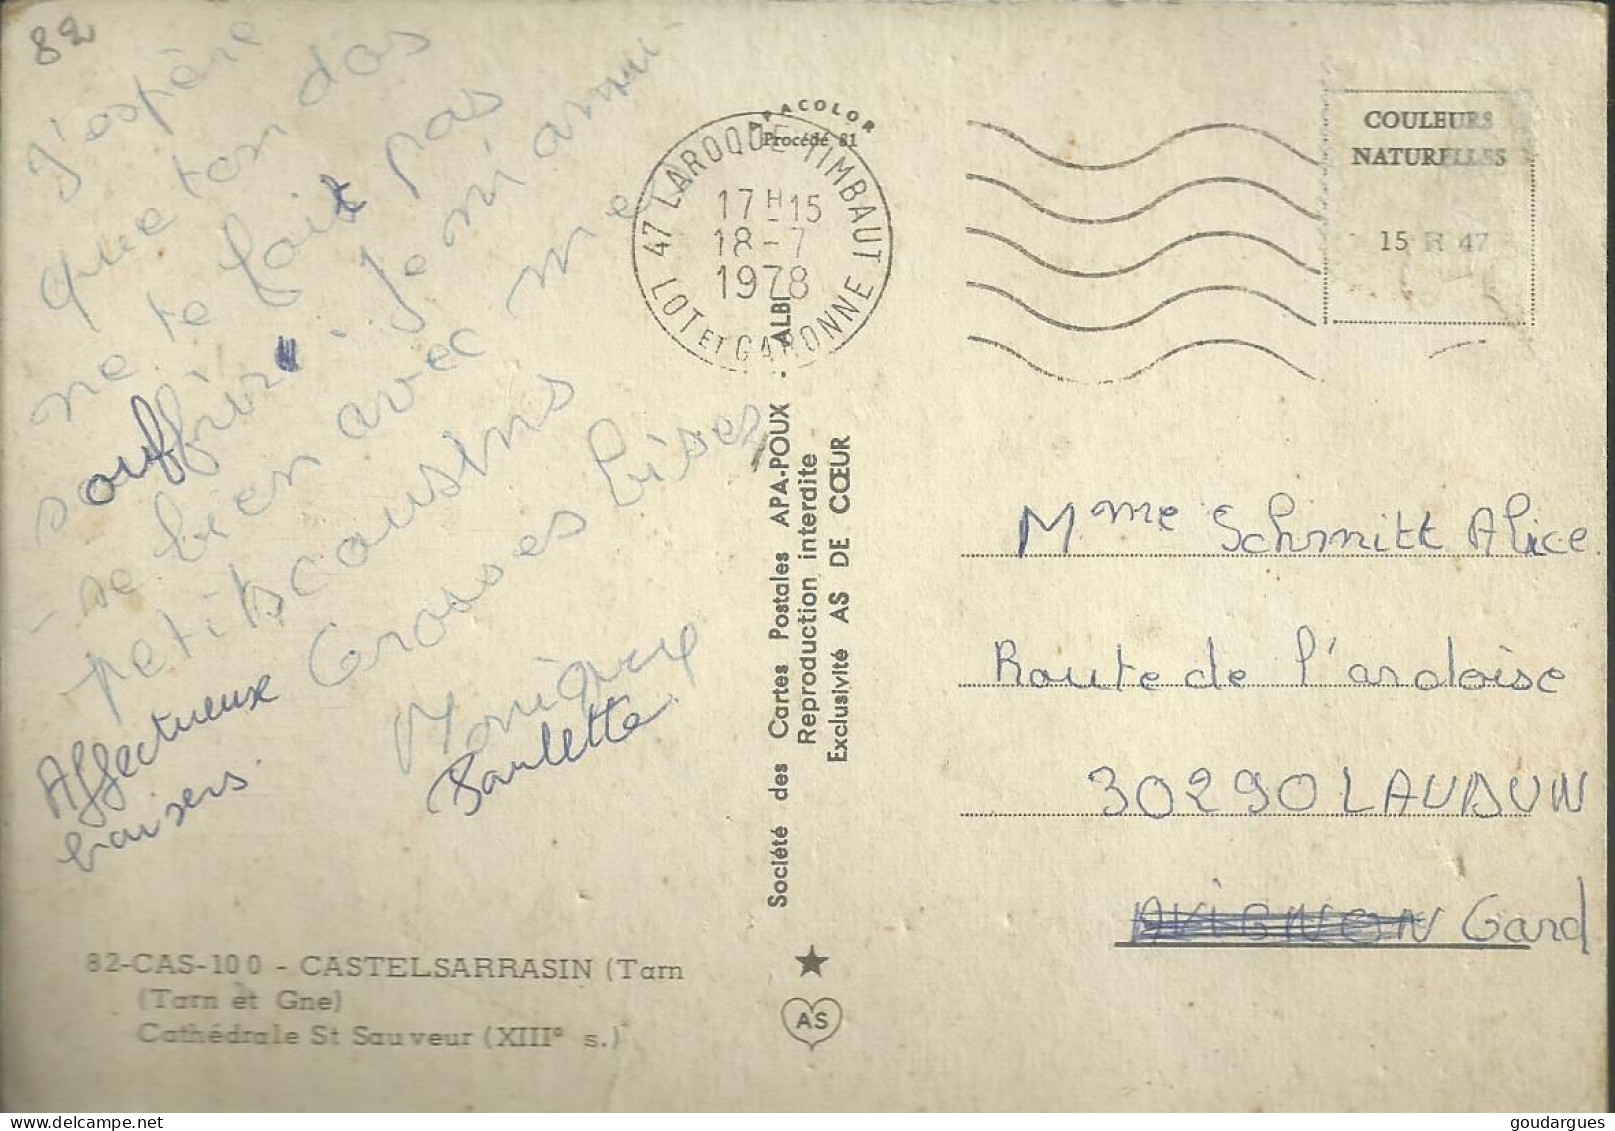 82
J'espère
que ton dos
ne te fait pas
souffrir. Je m'amu-
-se bien avec me
petits cousins
Grosses bises
Monique
Affectueux
baisers.
Paulette
82-CAS-100 - CASTELSARRASIN (Tarn
(Tarn et Gne)
Cathédrale St Sauveur (XIII° s.)
APACOLOR
Procédé 81
47 LAROQUE TIMBAUT
17H15
18-7
1978
LOT ET GARONNE
Société des Cartes Postales APA-POUX - ALBI
Reproduction interdite
Exclusivité AS DE CŒUR
AS
COULEURS
NATURELLES
15 R 47
Mme Schmitt Alice
Route de l'ardoise
30290 LAUDUN
AVIGNON Gard
goudargues © delcampe.net